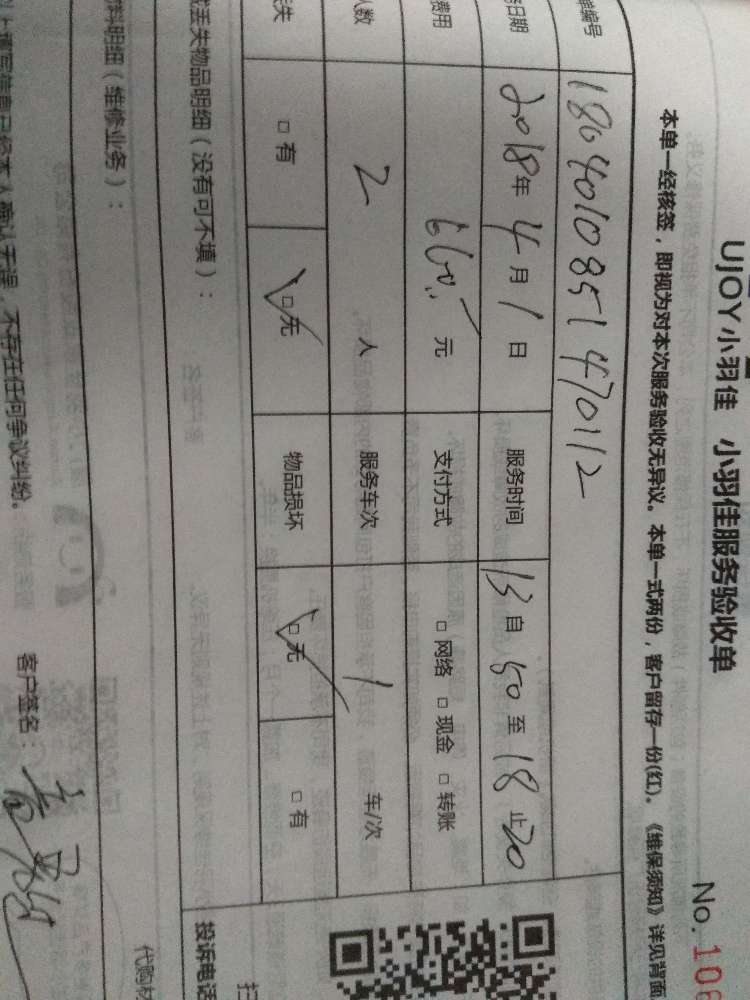 UJOY小羽佳 小羽佳服务验收单
No. 10
本单一经核签，即视为对本次服务验收无异议。本单一式两份，客户留存一份(红)。《维保须知》详见背面
单编号 1804010851470112
日期 2018年4月1日 服务时间 13自50至18止20
费用 660.- 元 支付方式 □网络 □现金 □转账
人数 2 人 服务车次 1 车/次
丢失 □有 □无 物品损坏 □无 □有
丢失物品明细（没有可不填）：
投诉电话
料明细（维修业务）：
代购材
确认无误，不存在任何争议纠纷。
客户签名：